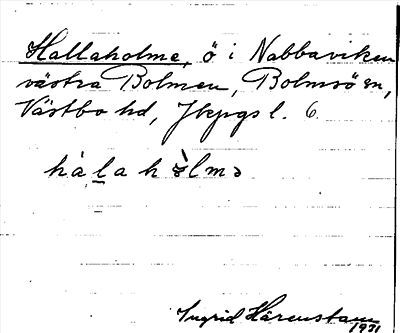 Hallaholme, ö i Nabbaviken
västra Bolmen, Bolmsö sn,
Västbo hd, Jkpgs l. 6
hàlahòlmə
Ingrid Härenstam
1931